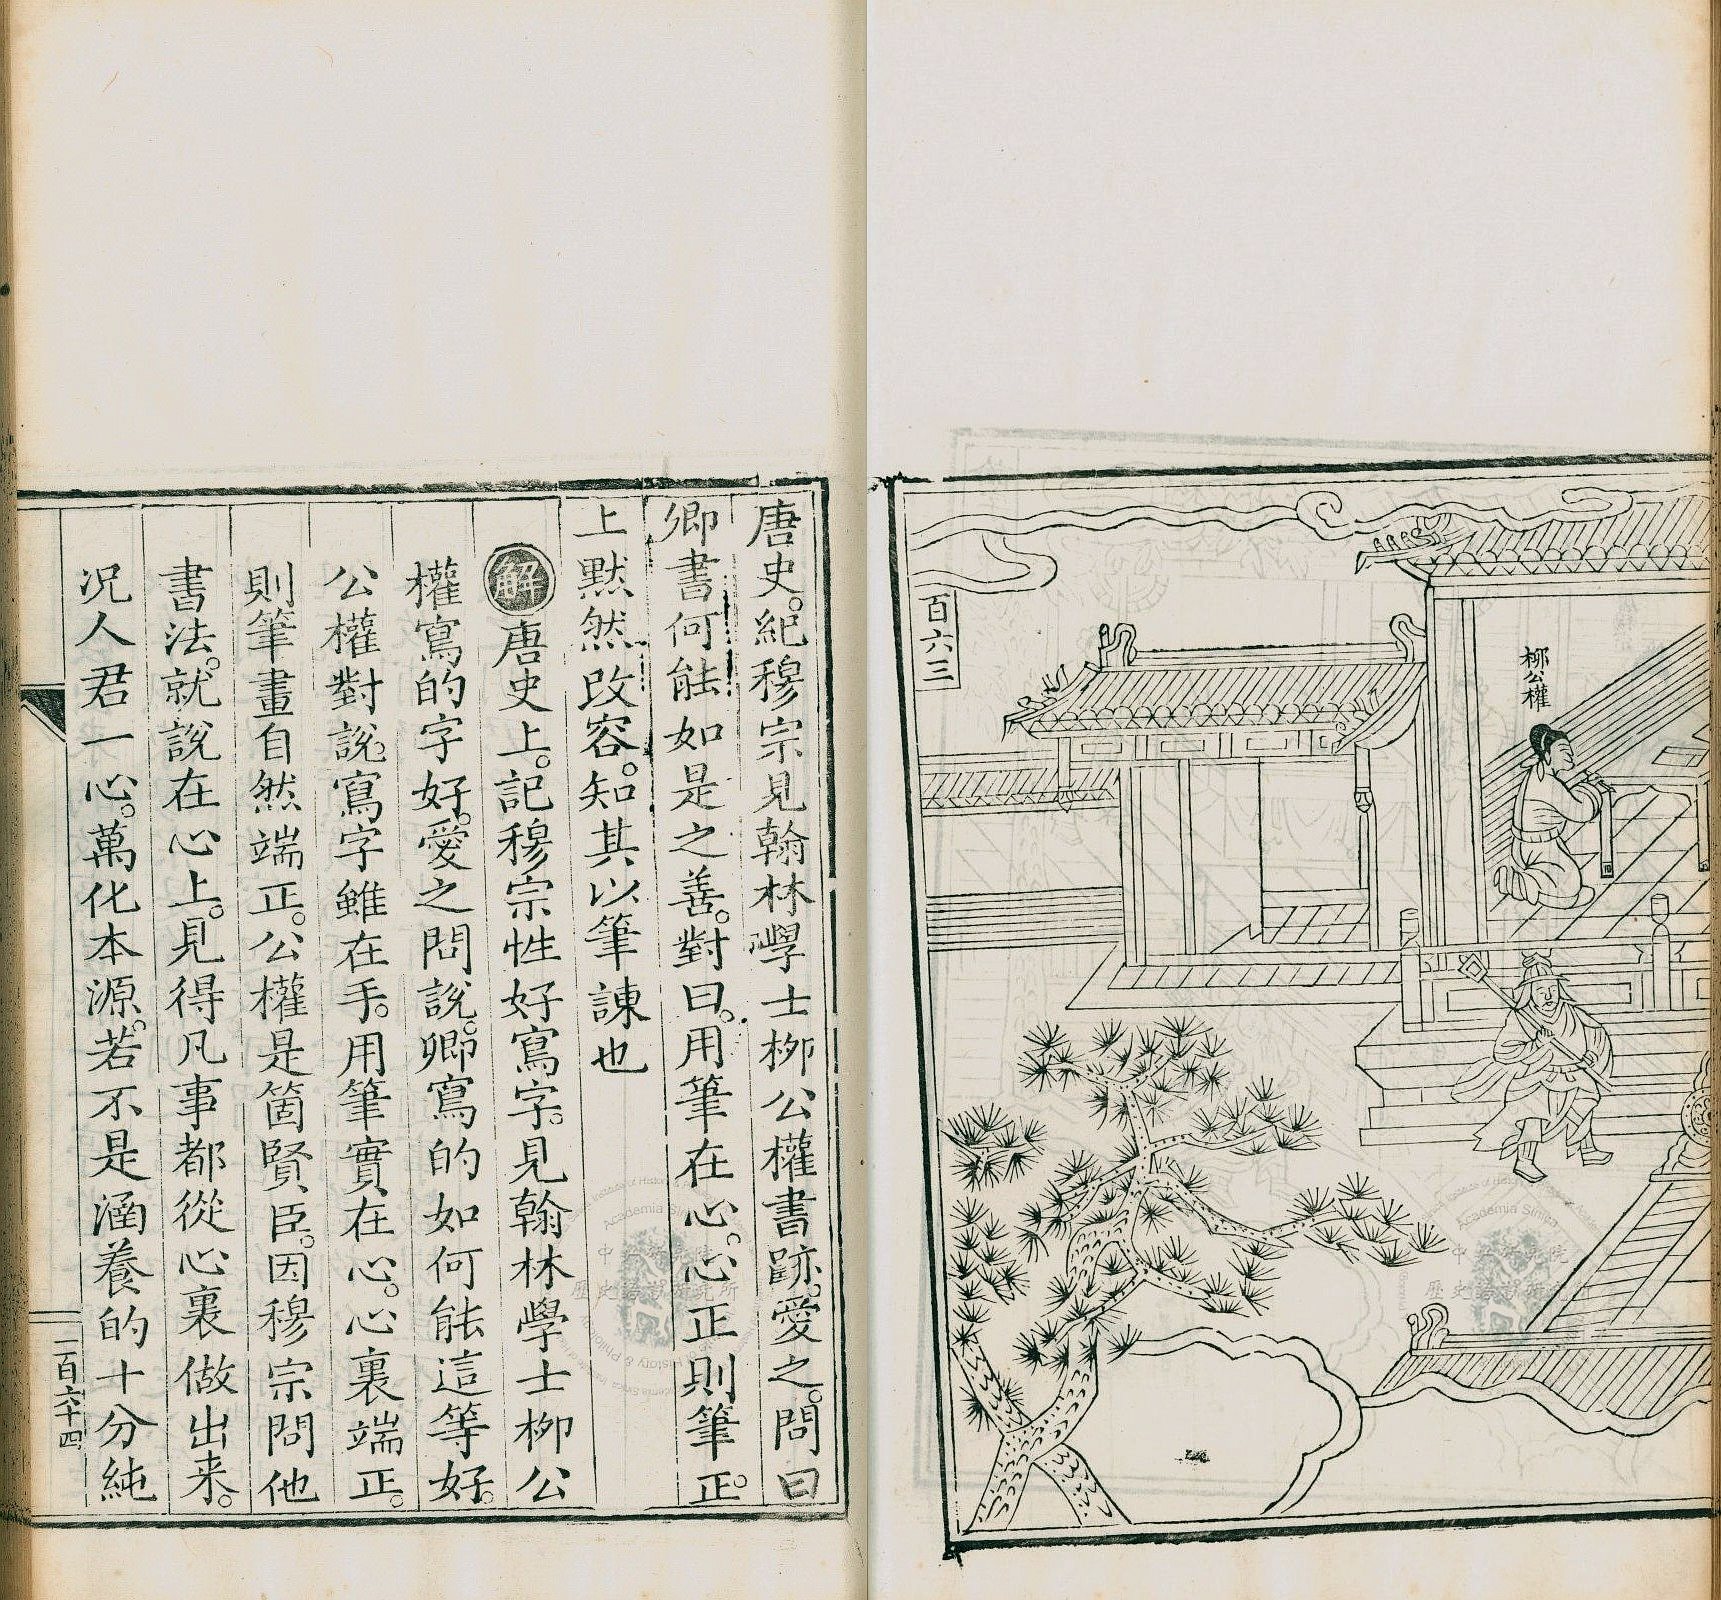 柳公權
百六三
唐史。紀穆宗見翰林學士柳公權書跡。愛之。問曰
卿書何能如是之善。對曰。用筆在心。心正則筆正。
上黙然改容。知其以筆諫也
解 唐史上。記穆宗性好寫字。見翰林學士柳公
權寫的字好。愛之問說。卿寫的如何能這等好。
公權對說。寫字雖在手。用筆實在心。心裏端正。
則筆畫自然端正。公權是箇賢臣。因穆宗問他
書法。就說在心上。見得凡事都從心裏做出来。
况人君一心。萬化本源。若不是涵養的十分純
一百六十四
Academia Sinica
中央研究院
歷史語言研究所
Academia Sinica
中央研究院
歷史語言研究所